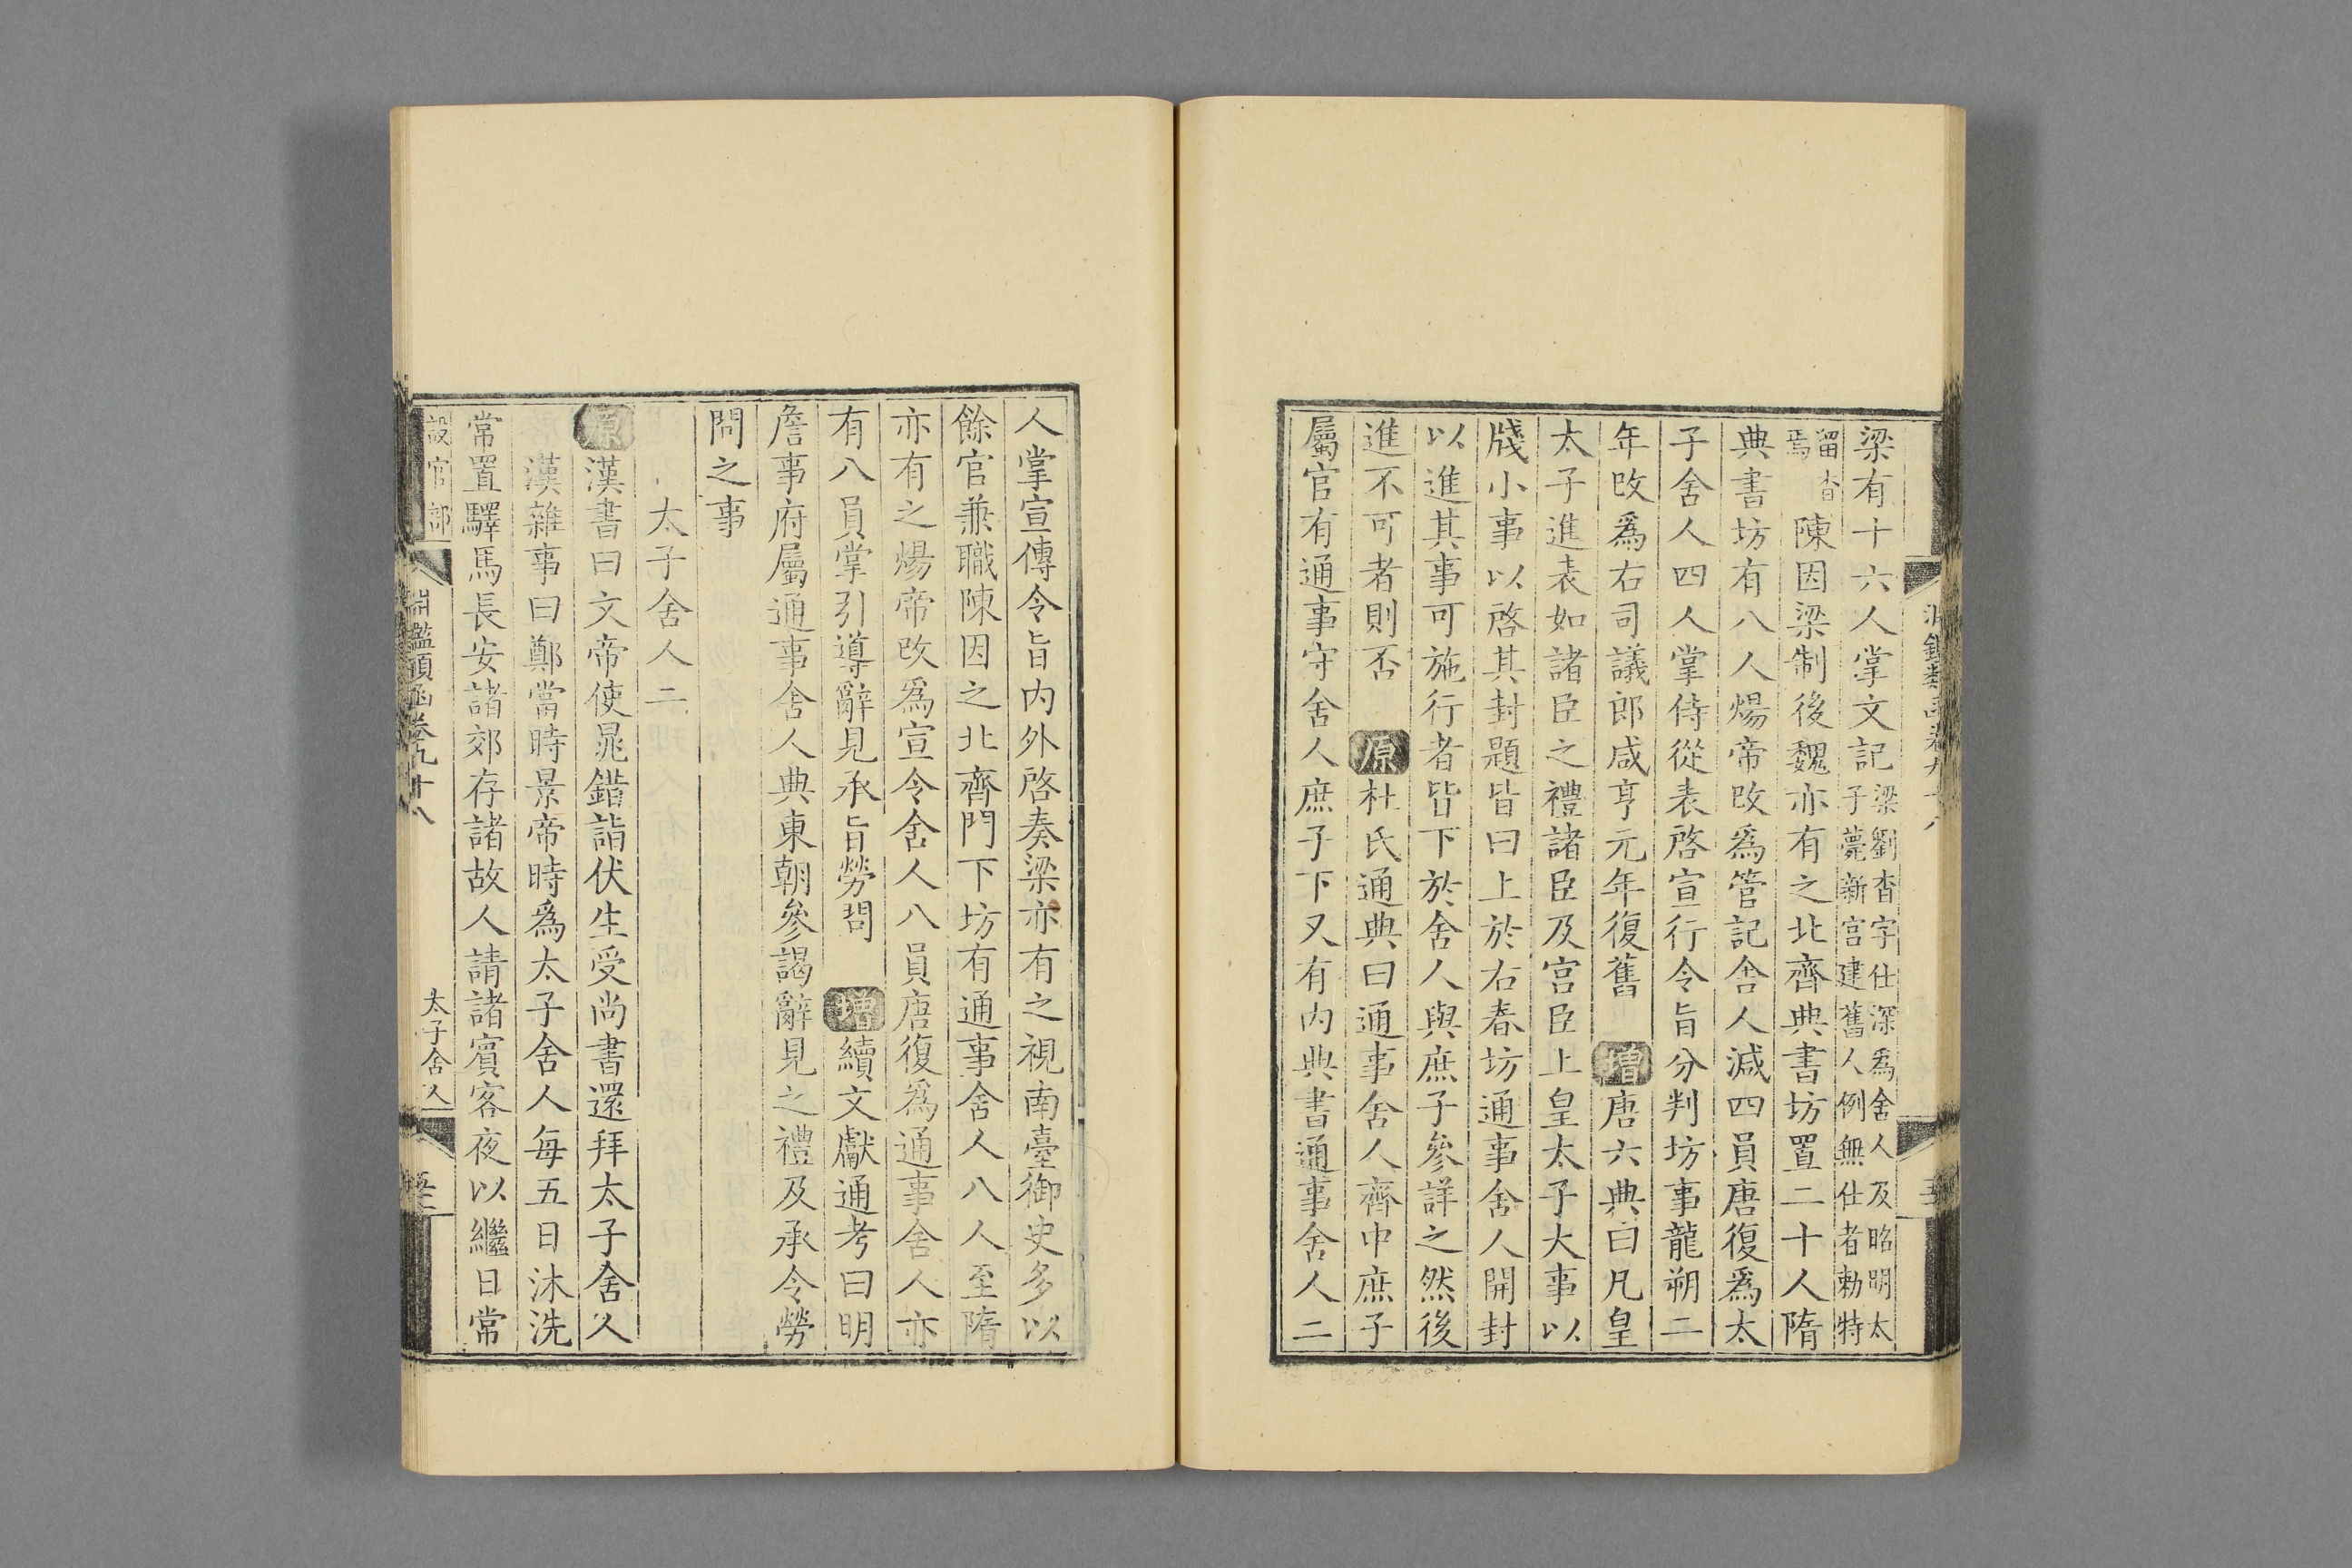 梁有十六人掌文記梁劉杳字仕深爲舍人及昭明太子薨新宫建舊人例無仕者勅特
留杳焉陳因梁制後魏亦有之北齊典書坊置二十人隋
典書坊有八人煬帝改爲管記舍人減四員唐復爲太
子舍人四人掌侍從表啓宣行令旨分判坊事龍朔二
年改爲右司議郎咸亨元年復舊 增唐六典曰凡皇
太子進表如諸臣之禮諸臣及宫臣上皇太子大事以
牋小事以啓其封題皆曰上於右春坊通事舍人開封
以進其事可施行者皆下於舍人與庶子參詳之然後
進不可者則否 原杜氏通典曰通事舍人齊中庶子
屬官有通事守舍人庶子下又有内典書通事舍人二
人掌宣傳令旨内外啓奏梁亦有之視南臺御史多以
餘官兼職陳因之北齊門下坊有通事舍人八人至隋
亦有之煬帝改爲宣令舍人八員唐復爲通事舍人亦
有八員掌引導辭見承旨勞問 增續文獻通考曰明
詹事府屬通事舍人典東朝參謁辭見之禮及承令勞
問之事
太子舍人二
原漢書曰文帝使晁錯詣伏生受尚書還拜太子舍人
漢雜事曰鄭當時景帝時爲太子舍人每五日沐洗
常置驛馬長安諸郊存諸故人請諸賓客夜以繼日常
設官部
淵鑑類函卷九十八
太子舍人